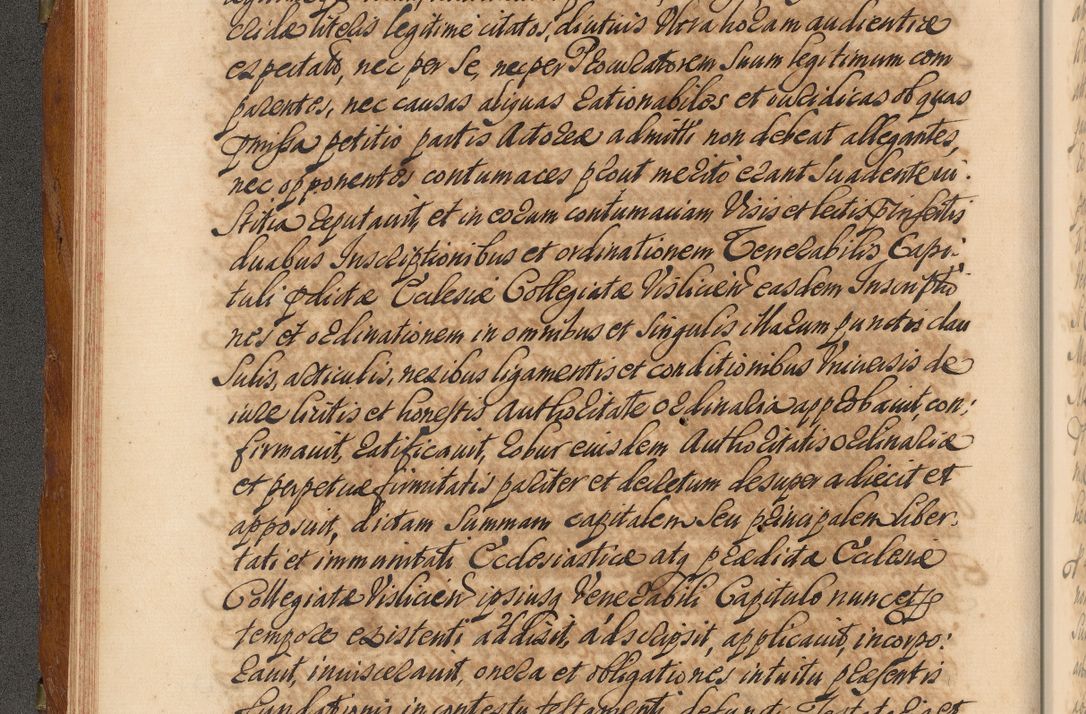 eridæ literis legitime citatos, diutuis Ultra horam audientiæ
expectatos, nec per se, nec per Procuratorem suum legitimum com
parentes, nec causas aliquas rationabiles et iuridicas ob quas
pmissa petitio partis Actoreæ admitti non debeat allegantes,
nec opponentes contumaces prout meritò erant Suadente iu-
stitia reputavit, et in eorum contumaciam Visis et lectis pinsertis
duabus Inscriptionibus et ordinationem Venerabilis Capi-
tuli pdictæ Ecclesiæ Collegiatæ Vislicien easdem Inscriptio
nes et ordinationem in omnibus et singulis illarum punctis clau
sulis, articulis, nexibus ligamentis et conditionibus Universis de
iure licitis et honestis Authoritate Ordinaria approbavit, con:
firmavit, ratificavit, robur eiusdem Authoritatis Ordinariæ
et perpetuæ firmitatis pariter et decretum desuper adiecit et
apposuit, dictam Summam capitalem seu principalem liber-
tati et immunitati Ecclesiasticæ atq prædictæ Ecclesiæ
Collegiatæ Vislicien ipsiusq Venerabili Capitulo nunc et p
tempore existenti addixit, adscripsit, applicavit, incorpo:
ravit, inviscеravit, onera et obligationes intuitu præsentis